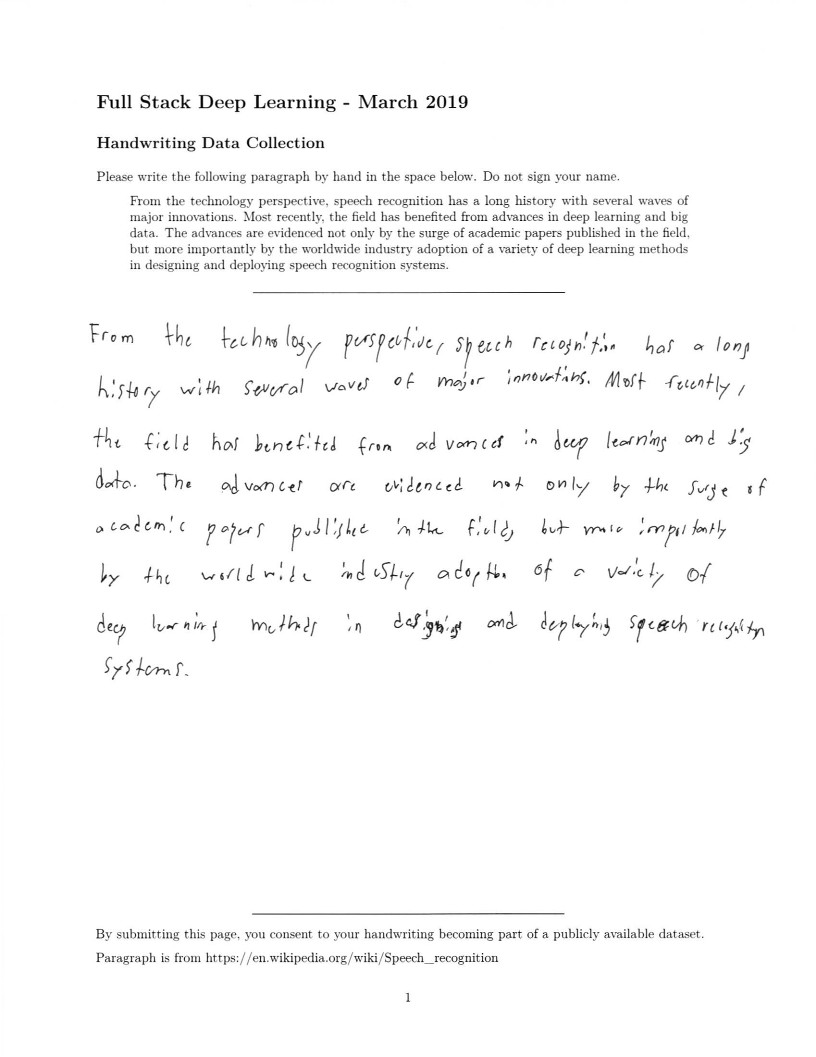 Full Stack Deep Learning - March 2019
Handwriting Data Collection
Please write the following paragraph by hand in the space below. Do not sign your name.
From the technology perspective, speech recognition has a long history with several waves of
major innovations. Most recently, the field has benefited from advances in deep learning and big
data. The advances are evidenced not only by the surge of academic papers published in the field,
but more importantly by the worldwide industry adoption of a variety of deep learning methods
in designing and deploying speech recognition systems.
From the technology perspective, speech recognition has a long
history with several waves of major innovations. Most recently,
the field has benefited from advances in deep learning and big
data. The advances are evidenced not only by the surge of
academic papers published in the field, but more importantly
by the worldwide industry adoption of a variety of
deep learning methods in designing and deploying speech recognition
systems.
By submitting this page, you consent to your handwriting becoming part of a publicly available dataset.
Paragraph is from https://en.wikipedia.org/wiki/Speech_recognition
1